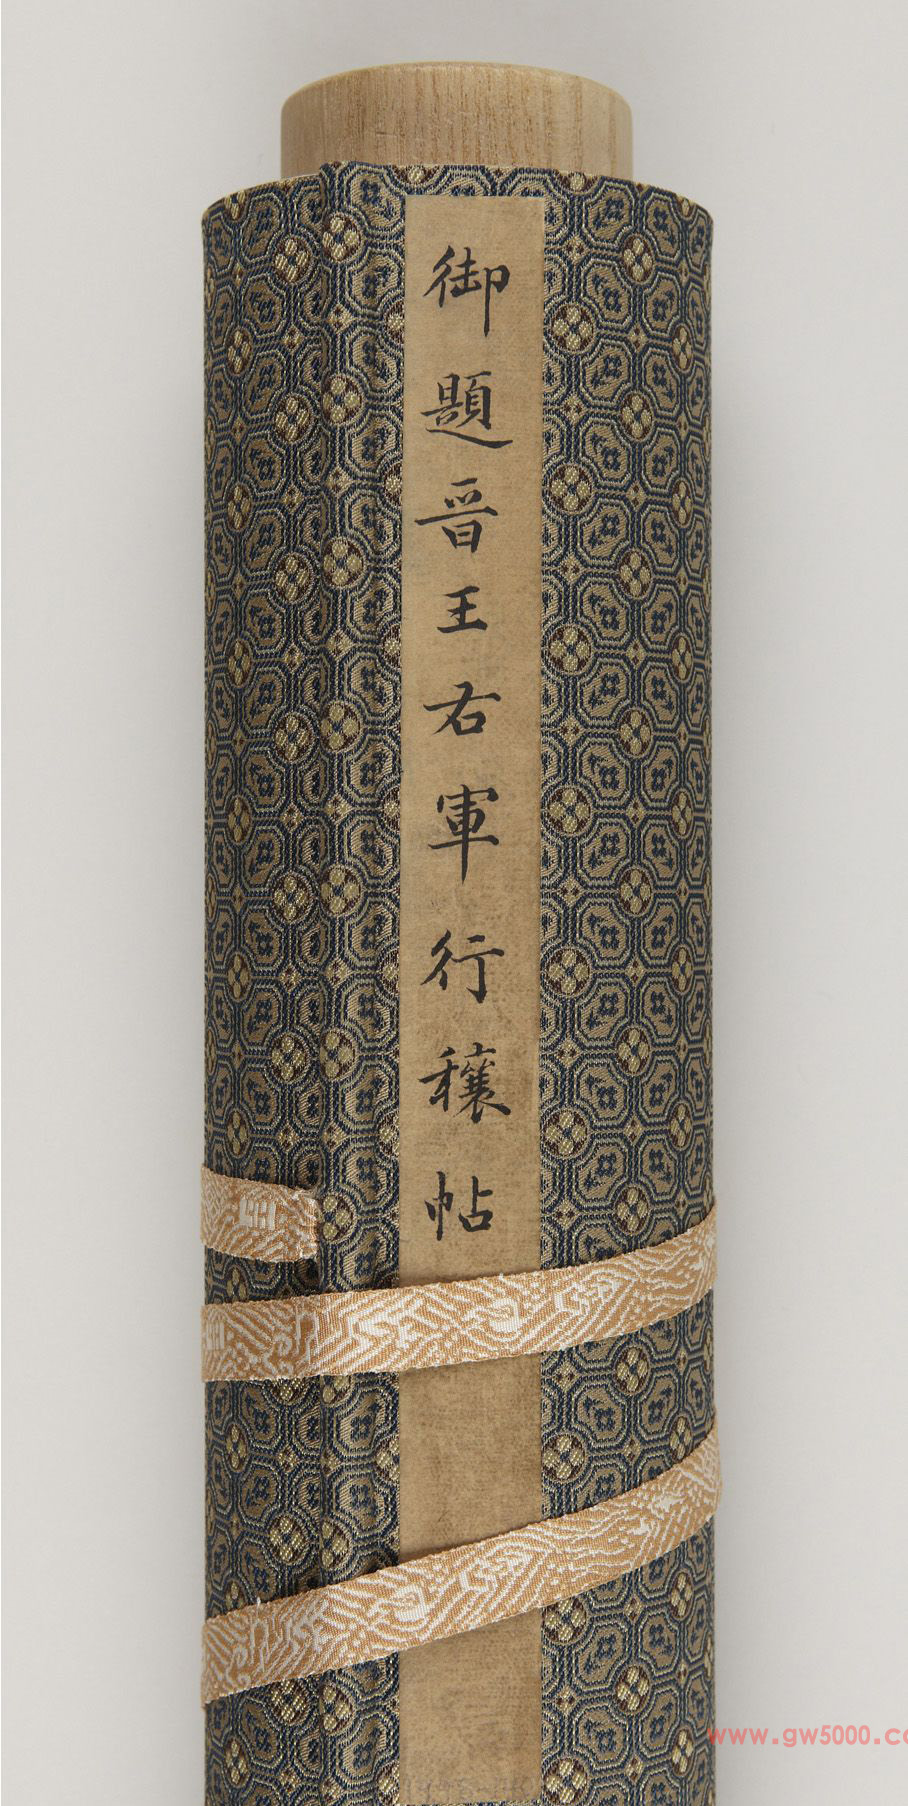 御題晉王右軍行穰帖
www.gw5000.co